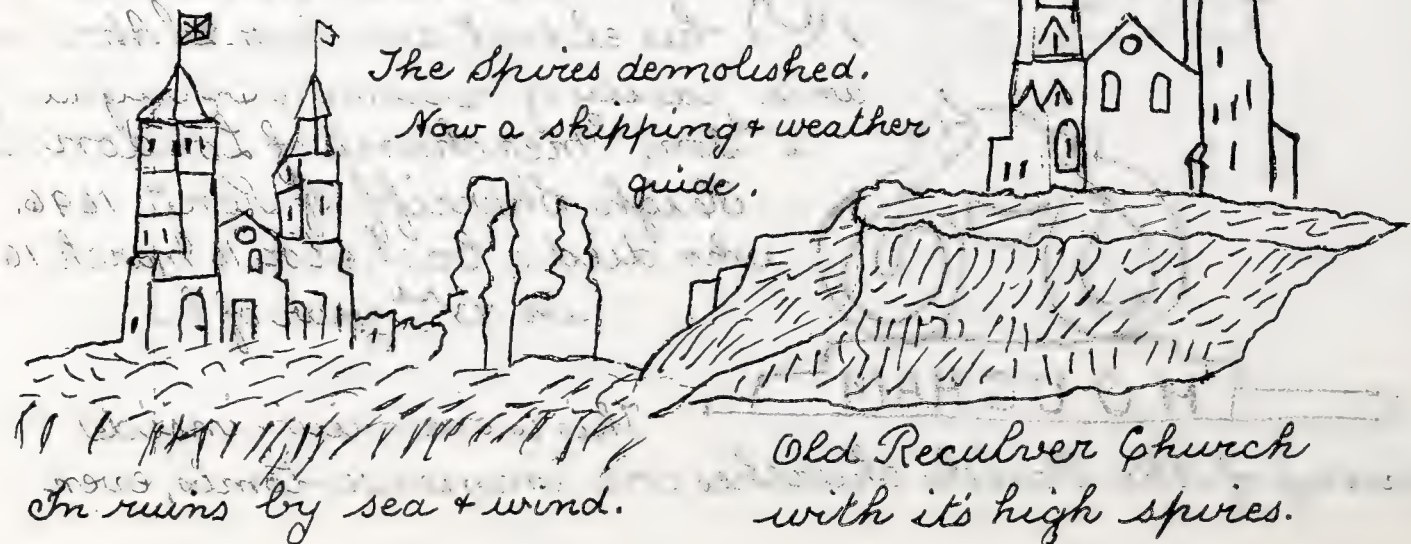 The Spires demolished.
Now a shipping & weather
guide.
In ruins by sea & wind.
Old Reculver Church
with it's high spires.